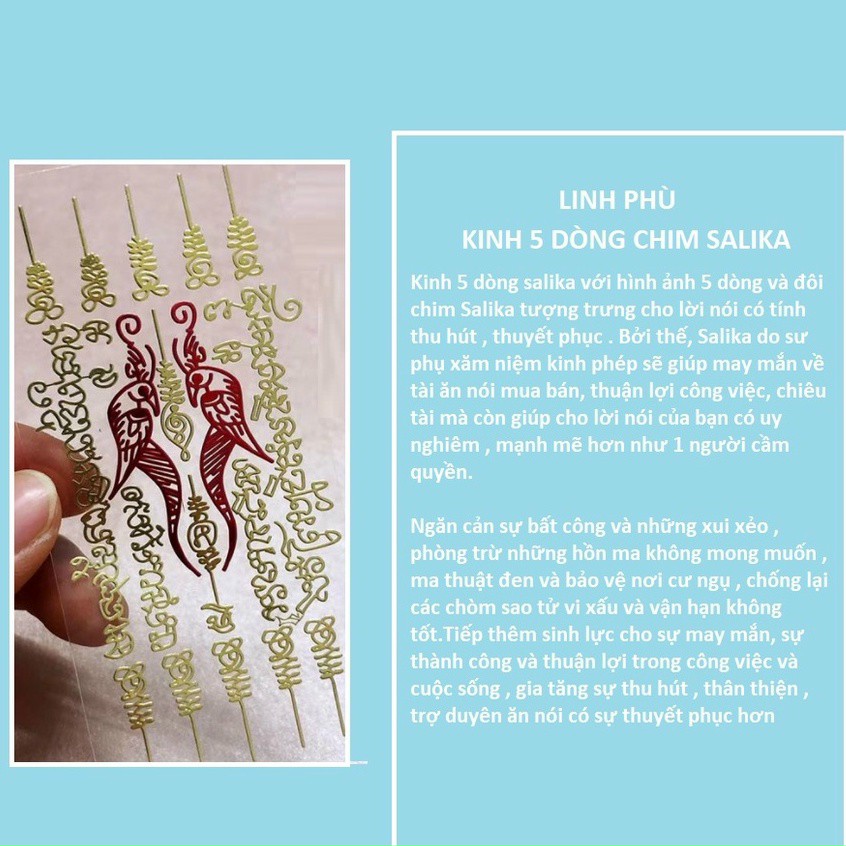 LINH PHÙ
KINH 5 DÒNG CHIM SALIKA
Kinh 5 dòng salika với hình ảnh 5 dòng và đôi
chim Salika tượng trưng cho lời nói có tính
thu hút , thuyết phục . Bởi thế, Salika do sư
phụ xăm niệm kinh phép sẽ giúp may mắn về
tài ăn nói mua bán, thuận lợi công việc, chiêu
tài mà còn giúp cho lời nói của bạn có uy
nghiêm , mạnh mẽ hơn như 1 người cầm
quyền.
Ngăn cản sự bất công và những xui xẻo ,
phòng trừ những hồn ma không mong muốn ,
ma thuật đen và bảo vệ nơi cư ngụ , chống lại
các chòm sao tử vi xấu và vận hạn không
tốt.Tiếp thêm sinh lực cho sự may mắn, sự
thành công và thuận lợi trong công việc và
cuộc sống , gia tăng sự thu hút , thân thiện ,
trợ duyên ăn nói có sự thuyết phục hơn